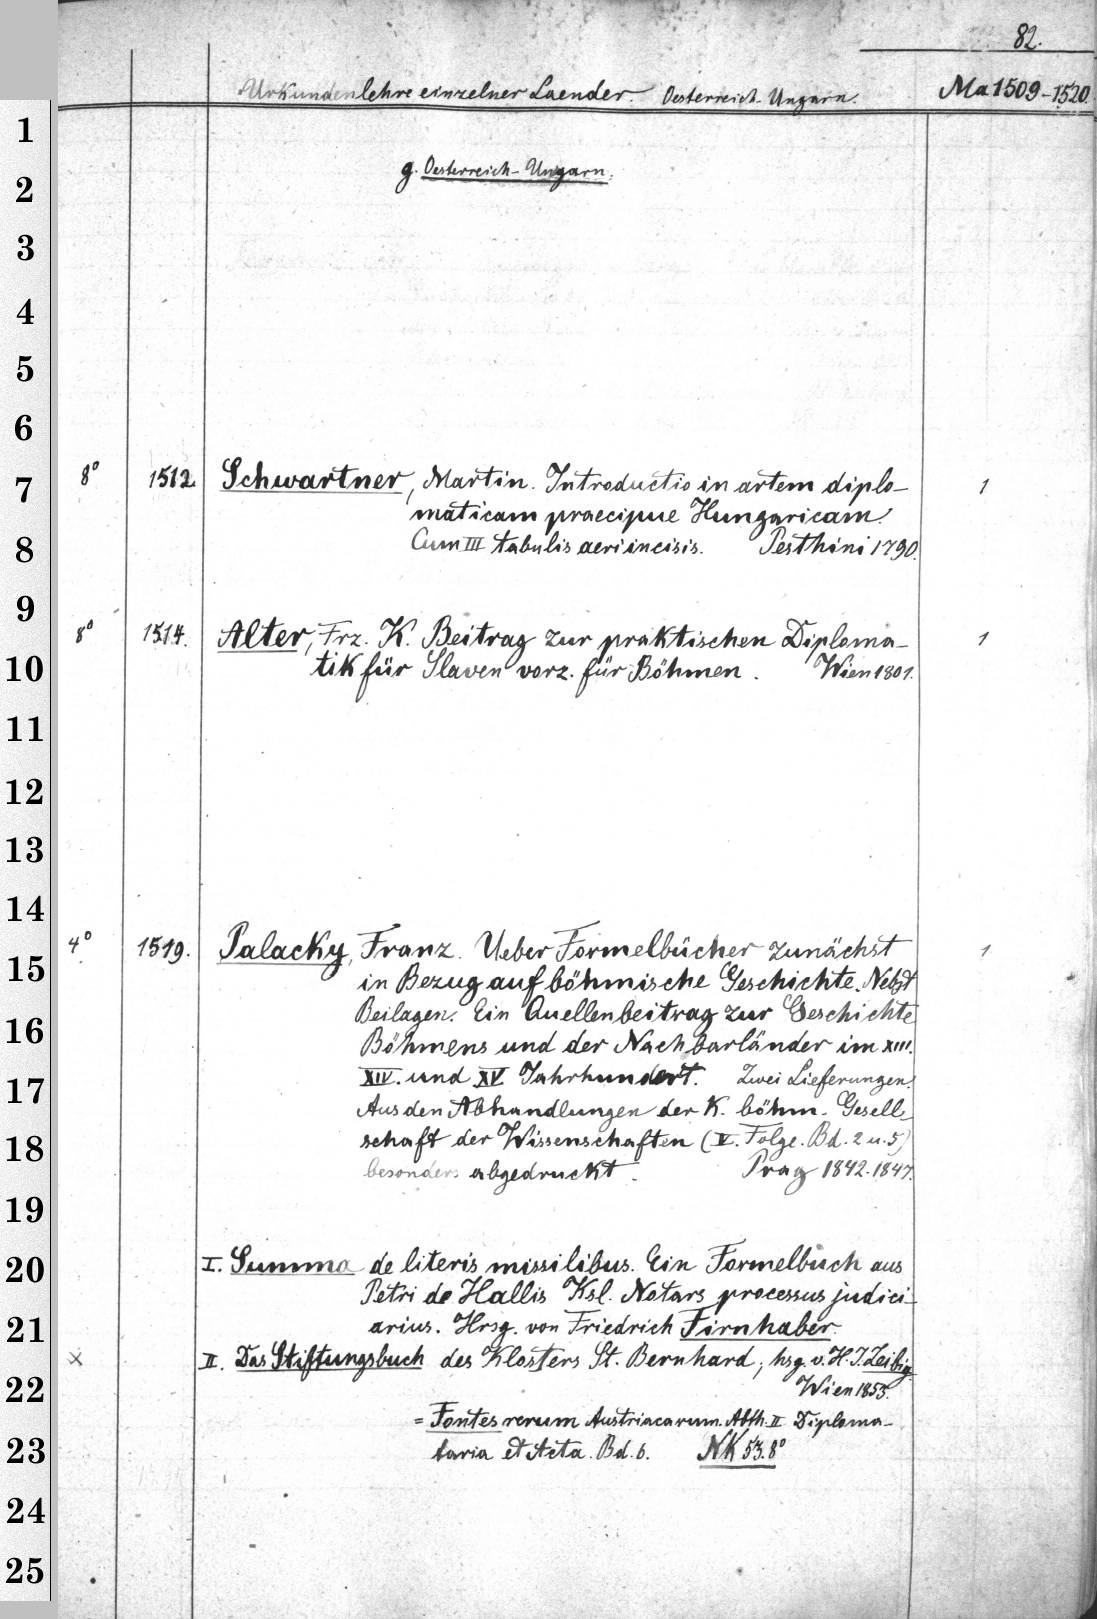 82.
Urkundenlehre einzelner Laender. Oesterreich-Ungarn. Ma 1509-1520.
1
g. Oesterreich-Ungarn.
2
3
4
5
6
8° 1512 Schwartner, Martin. Introductio in artem diplo- 1
7
maticam praecipue Hungaricam.
8 Cum III tabulis aeri incisis. Pesthini 1790.
9
8° 1514. Alter, Frz. K. Beitrag zur praktischen Diploma- 1
10 tik für Slaven vorz. für Böhmen. Wien 1801.
11
12
13
14
4° 1519. Palacky, Franz. Ueber Formelbücher zunächst 1
15 in Bezug auf böhmische Geschichte. Nebst
Beilagen. Ein Quellenbeitrag zur Geschichte
16 Böhmens und der Nachbarländer im XIII.
XIV. und XV Jahrhundert. Zwei Lieferungen.
17
Aus den Abhandlungen der K. böhm. Gesell
18 schaft der Wissenschaften (V. Folge. Bd. 2 u. 5)
besonders abgedruckt. Prag 1842-1847.
19
20 I. Summa de literis missilibus. Ein Formelbuch aus
Petri de Hallis Ksl. Notars processus judici-
21 arius. Hrsg. von Friedrich Firnhaber.
x II. Das Stiftungsbuch des Klosters St. Bernhard, hsg. v. H. J. Zeibig
22 Wien 1853.
= Fontes rerum Austriacarum. Abth. II Diploma-
23 taria et Acta. Bd. 6. NK 53. 8°
24
25